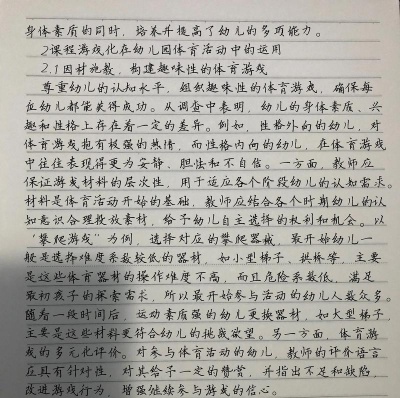 身体素质的同时，培养并提高了幼儿的多项能力。
2课程游戏化在幼儿园体育活动中的运用
2.1因材施教，构建趣味性的体育游戏
尊重幼儿的认知水平，组织趣味性的体育游戏，确保每
位幼儿都能获得成功。从调查中表明，幼儿的身体素质、兴
趣和性格上存在着一定的差异。例如，性格外向的幼儿，对
体育游戏抱有极强的热情，而性格内向的幼儿，在体育游戏
中往往表现得更为安静，胆怯和不自信。一方面，教师应
保证游戏材料的层次性，用于适应各个阶段幼儿的认知需求。
材料是体育活动开始的基础，教师应结合各个时期幼儿的认
知意识合理投放素材，给予幼儿自主选择的权利和机会。以
“攀爬游戏”为例，选择对应的攀爬器械，最开始幼儿一
般是选择难度系数较低的器材，如小型梯子、拱桥等，主要
是这些体育器材的操作难度不高，而且危险系数低，满足
最初孩子的探索需求，所以最开始参与活动的幼儿人数众多。
随着一段时间后，运动素质强的幼儿更换器材，如大型梯子，
主要是这些材料更符合幼儿的挑战欲望。另一方面，体育游
戏的多元化评价。对参与体育活动的幼儿，教师的评价语言
应具有针对性，对其给予一定的赞赏，并指出不足和缺陷，
改进游戏行为，增强继续参与游戏的信心。